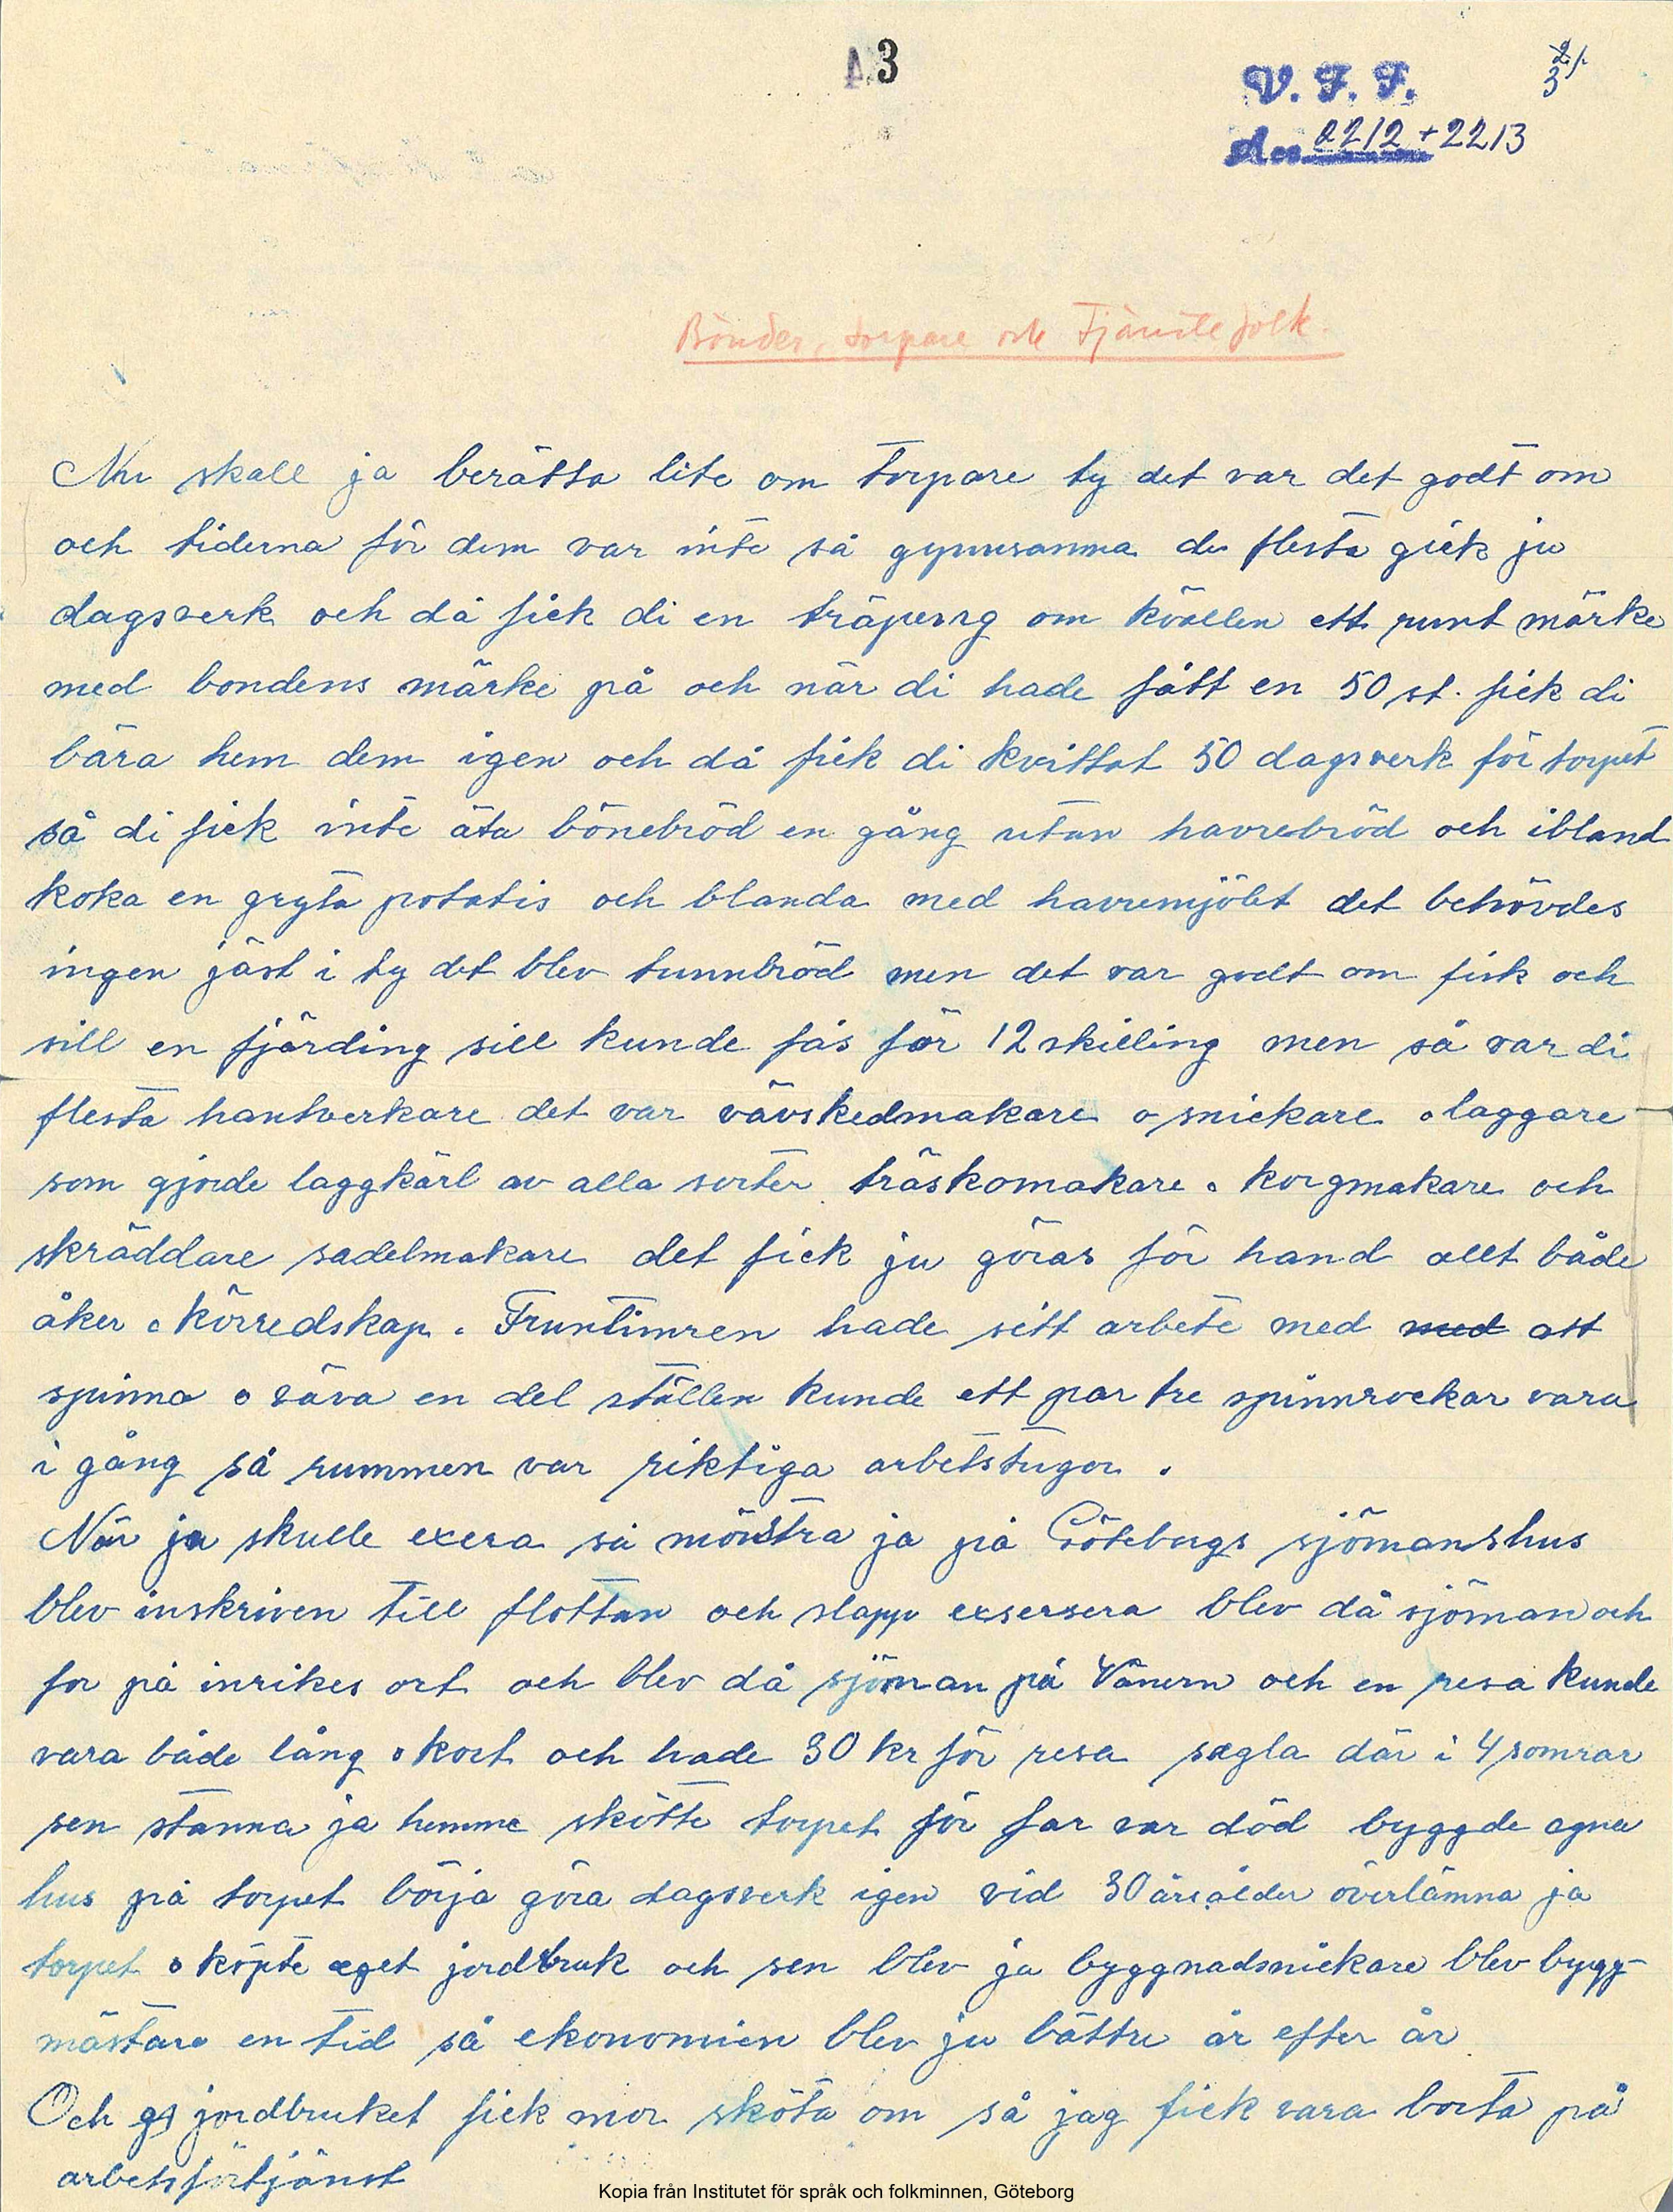 3
V. F. F.
Acc. 2212 + 2213
Bönder, torpare och Tjänstefolk.
Nu skall ja berätta lite om torpare ty det var det godt om
och tiderna för dem var inte så gynnsamma de flesta gick ju
dagsverk och då fick di en träpeng om kvällen ett runt märke
med bondens märke på och när di hade fått en 50 st. fick di
bära hem dem igen och då fick di kvittat 50 dagsverk för torpet
så di fick inte äta bönebröd en gång utan havrebröd och ibland
koka en gryta potatis och blanda med havremjölet det behövdes
ingen jäst i ty det blev tunnbröd men det var godt om fisk och
sill en fjärding sill kunde fås för 12 skilling men så var di
flesta hantverkare det var vävskedmakare o snickare o laggare
som gjorde laggkärl av alla sorter träskomakare o korgmakare och
skräddare sadelmakare det fick ju göras för hand allt både
åker o körredskap. Fruntimren hade sitt arbete med med att
spinna o väva en del ställen kunde ett par tre spinnrockar vara
i gång så rummen var riktiga arbetstugor.
När ja skulle exera så mönstra ja på Göteborgs sjömanshus
blev inskriven till flottan och slapp exsersera blev då sjöman och
for på inrikes ort och blev då sjöman på Vänern och en resa kunde
vara både lång o kort och hade 30 kr för resa segla där i 4 somrar
sen stanna ja hemme skötte torpet för far var död byggde egna
hus på torpet börja göra dagsverk igen vid 30 årsålder överlämna ja
torpet o köpte eget jordbruk och sen blev ja byggnadsnickare blev bygg-
mästare en tid så ekonomien blev ju bättre år efter år
Och jordbruket fick mor sköta om så jag fick vara borta på
arbetsförtjänst
Kopia från Institutet för språk och folkminnen, Göteborg